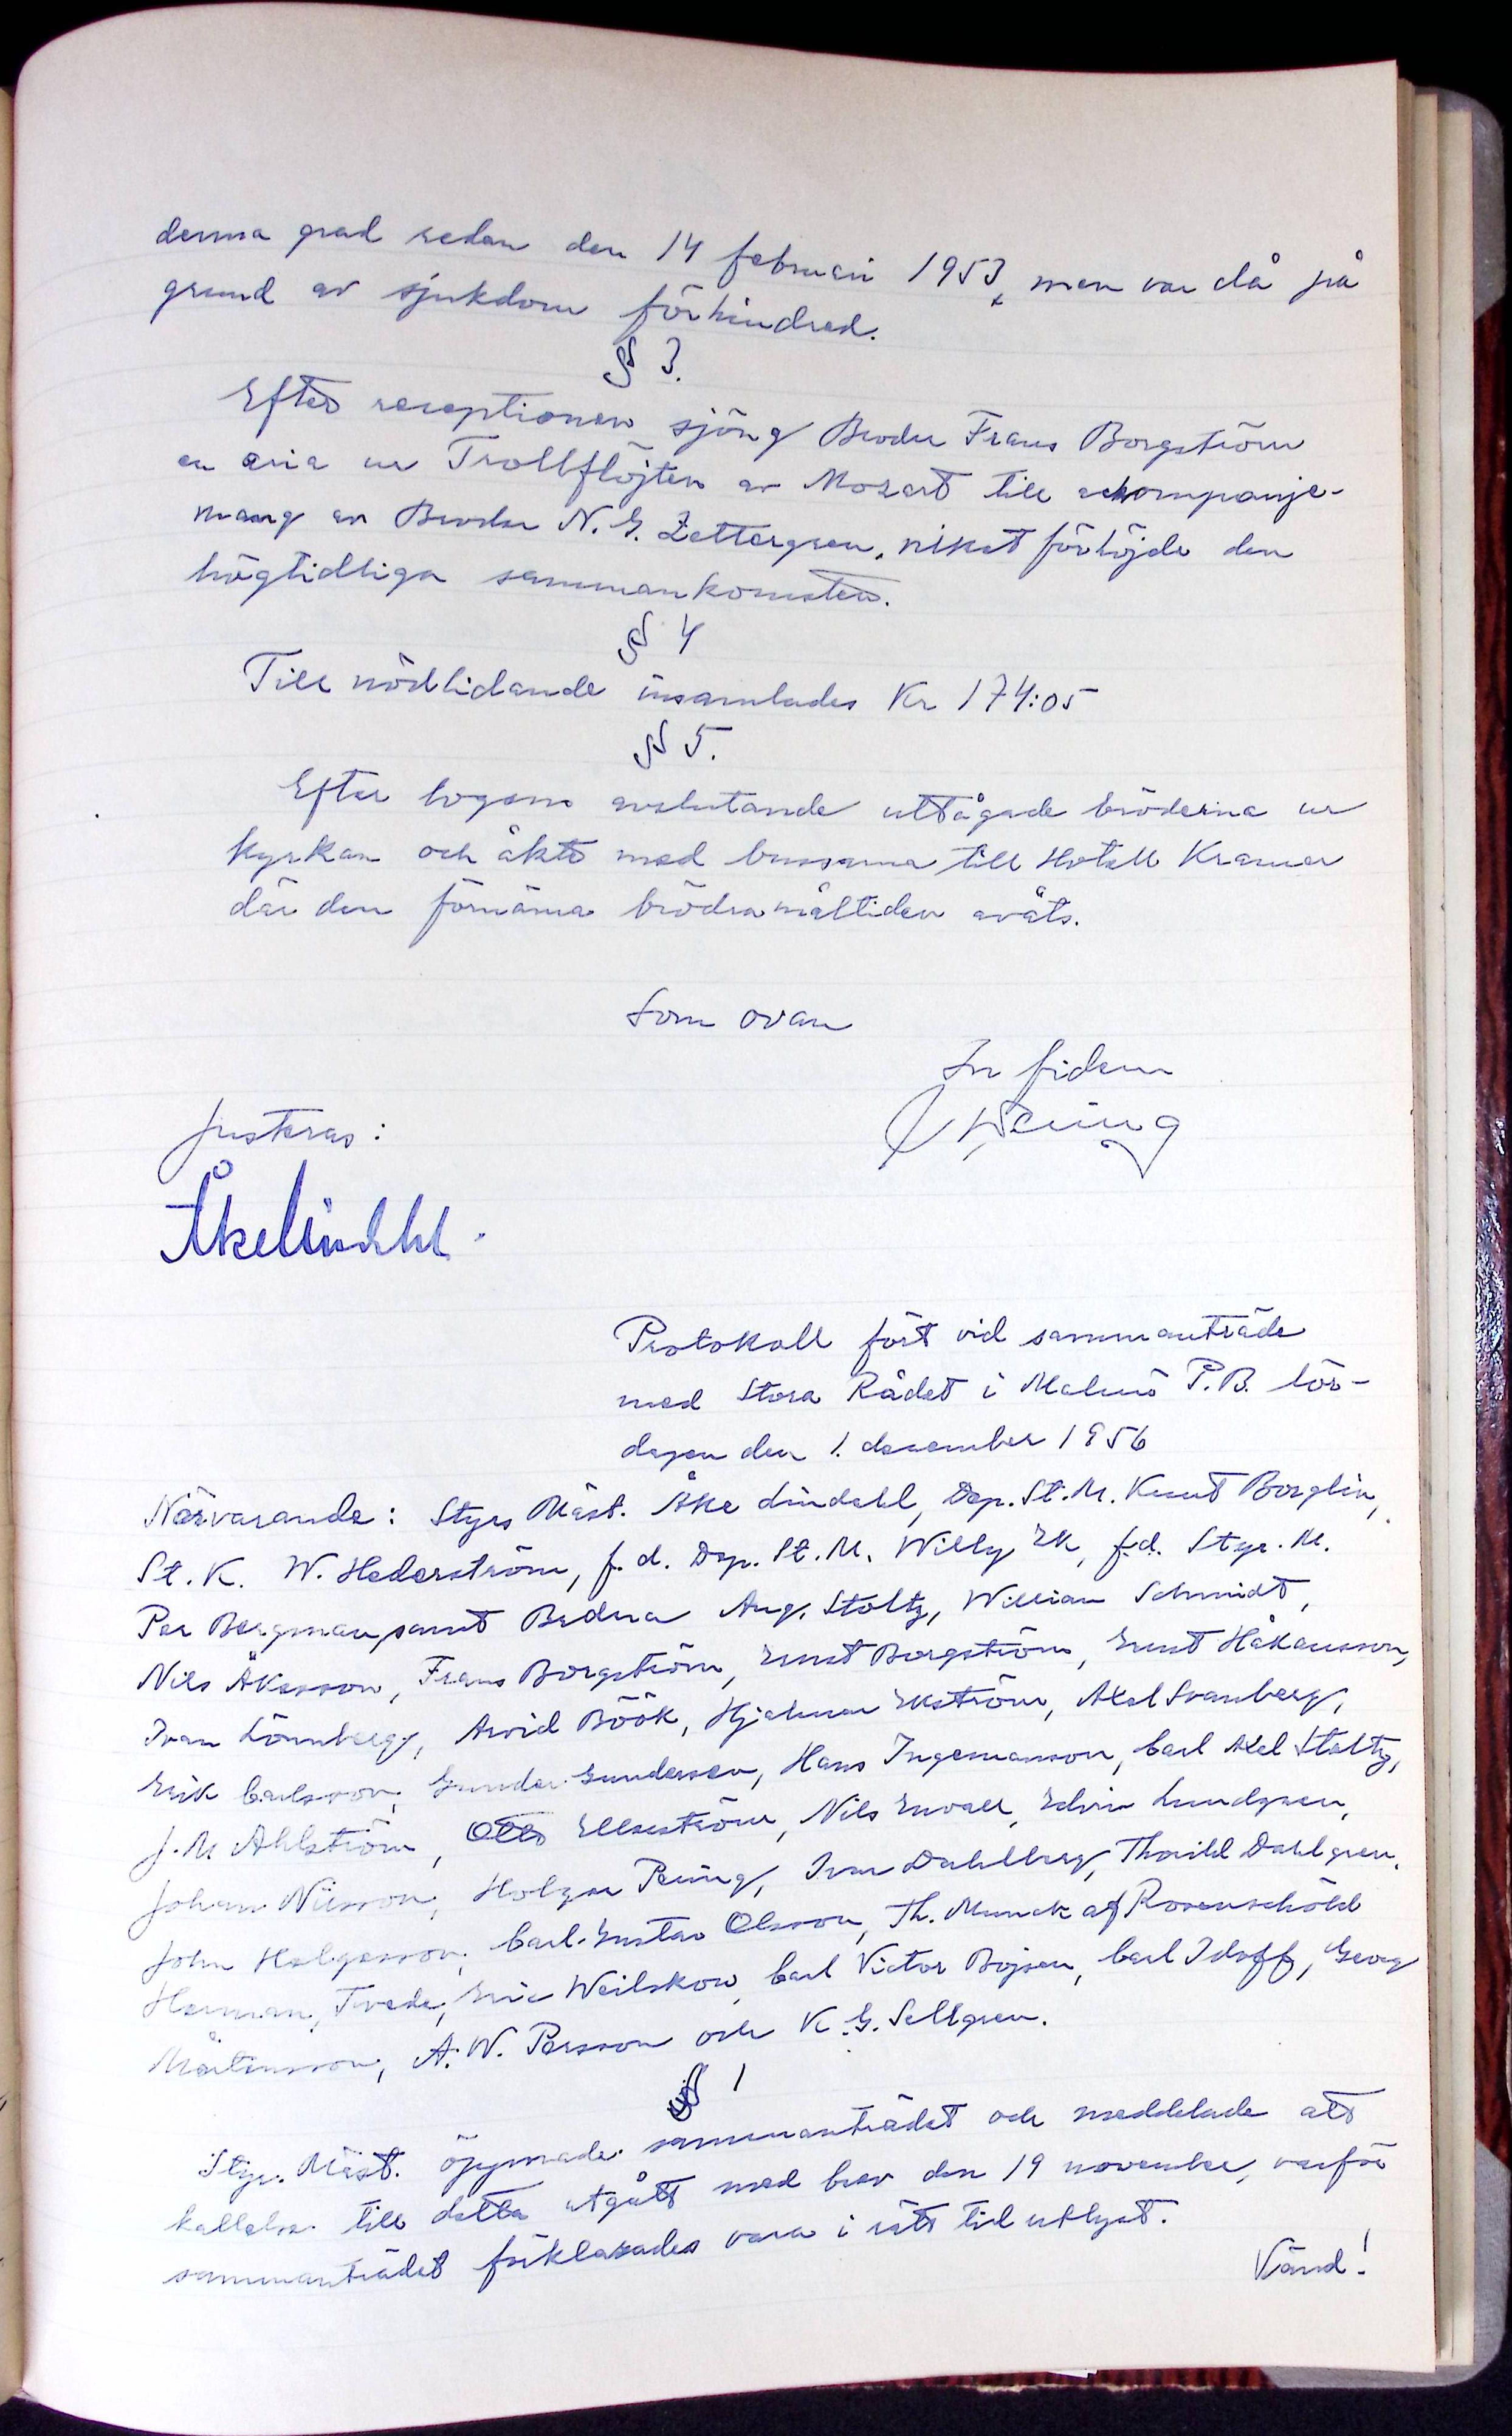 denna grad redan den 14 februari 1953, men var då på
grund av sjukdom förhindrad.
§ 3.
Efter receptionen sjöng Broder Frans Borgström
en aria ur Trollflöjten av Mozart till ackompanje-
mang av Broder N. G. Zettergren, vilket förhöjde den
högtidliga sammankomsten.
§ 4
Till nödlidande insamlades Kr 174:05
§ 5.
Efter logens avslutande uttågade bröderna ur
kyrkan och åkte med bussarna till Hotell Kramer
där den förnäma brödramåltiden avåts.
Som ovan
In fidem
Justeras:
Åke Lindahl
Protokoll fört vid sammanträde
med Stora Rådet i Malmö P.B. lör-
dagen den 1. december 1956
Närvarande: Styrs Mäst. Åke Lindahl, Dep. St. M. Knut Borglin,
St. K. W. Hederström, f. d. Dep. St. M. Willy Ek, f.d. Styr. M.
Per Bergman samt Bröderna Aug. Stoltz, William Schmidt,
Nils Åkesson, Frans Borgström, Ernst Borgström, Ernst Håkansson,
Ivan Lönnberg, Arvid Böök, Hjalmar Ekström, Axel Svanberg,
Erik Carlsson, Gunder Gundersen, Hans Ingemanson, Carl Axel Stoltz,
J. M Ahlström, Otto Ellseström, Nils Envall, Edvin Lundgren,
Johan Nilsson, Holger Pening, Ivar Dahlberg, Thorild Dahlgren,
John Holgersson, Carl-Gustav Olsson, Th. Munck af Rosenschöld
Herman Tvede, Eric Weilskow, Carl Victor Bojsen, Carl Idoff, Georg
Mårtensson, A. W. Persson och K. G. Sellgren.
§ 1
Styr. Mäst. öppnade sammanträdet och meddelade att
kallelse till detta utgått med brev den 19 november, varför
sammanträdet förklarades vara i rätt tid utlyst.
Vänd!